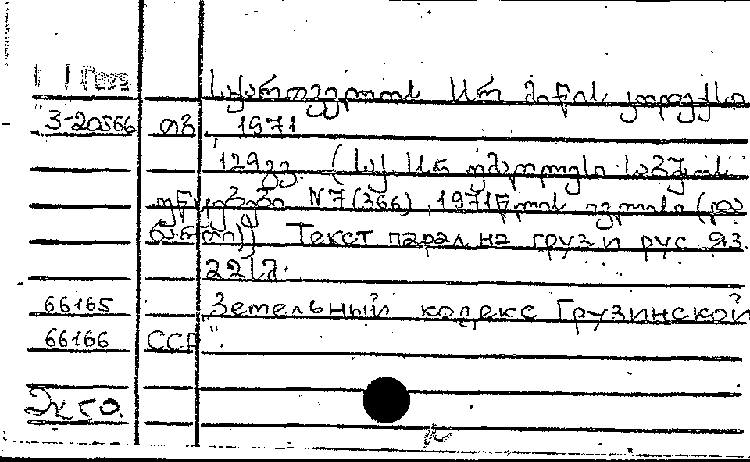 საქართველოს სსრ მიწის კოდექსი
3-20566 თბ 1971
129გვ. (საქ სსრ უმაღლესი საბჭოს
უწყებები N7(366) 1971წლის ივლისი (და
Текст парал на груз и рус яз.
22 კ.
66165 Земельный кодекс Грузинской
66166 ССР".